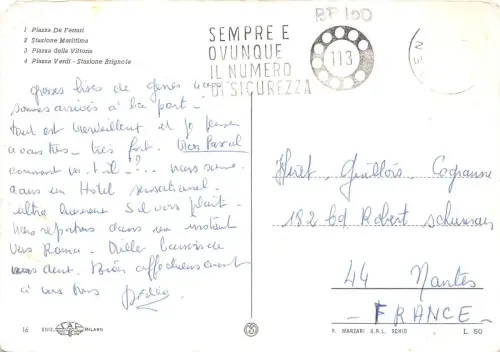 1 Piazza De Ferrari
2 Stazione Marittima
3 Piazza della Vittoria
4 Piazza Verdi - Stazione Brignole
BP 100
SEMPRE E
OVUNQUE
IL NUMERO
DI SICUREZZA
113
grosses bises de gênes nous
sommes arrivés à bon port -
tout est merveilleux et je pense
à vous très - très fort. Mon Pascal
comment va-t-il - ?... nous sommes
dans un Hotel sensationnel.
ultra moderne s'il vous plait.
nous repartons dans un instant
vers Rome. Mille baisers de
Bien affectueusement
à vous tous
Guillois Cogranne
182 bd Robert Schuman
44 Nantes
- FRANCE -
16 EDIZ. SAF MILANO
P. MARZARI S.R.L. SCHIO
L. 50